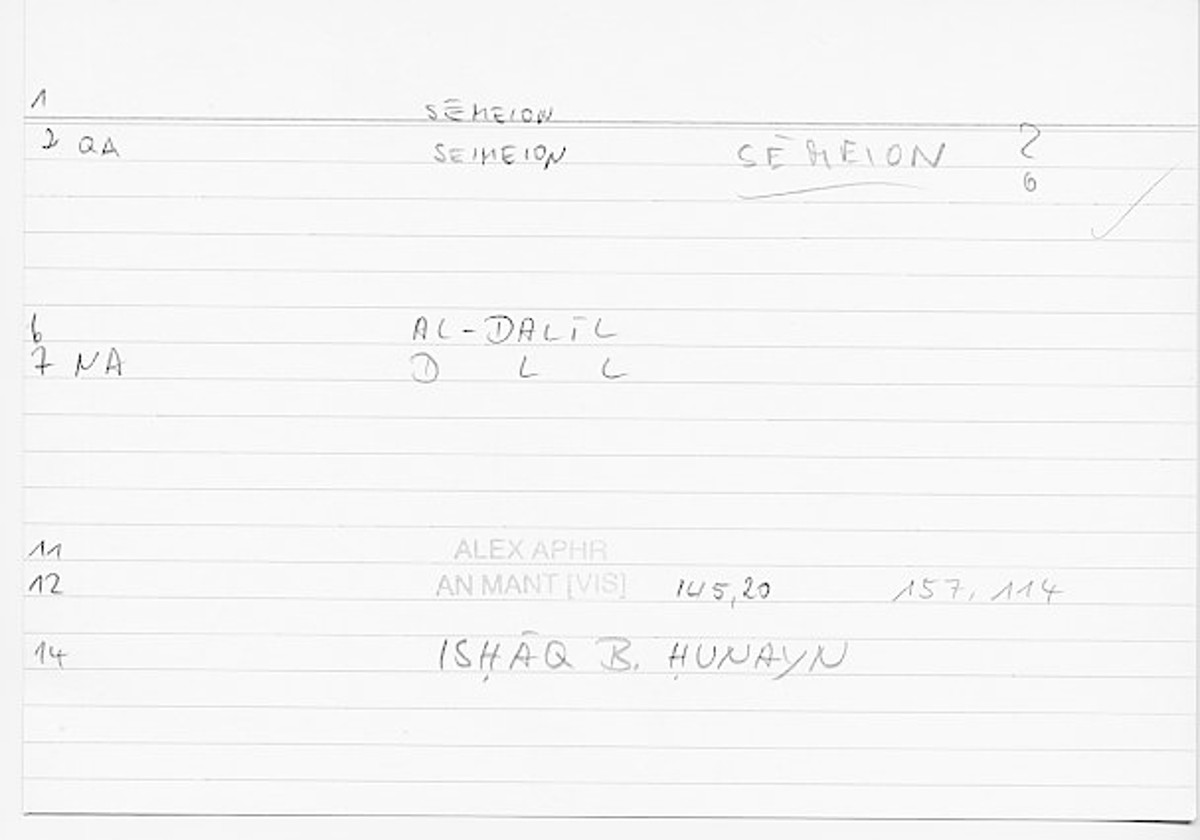 1 SĒMEION
2 QA SEIMEION SĒMEION 2
6
6 AL-DALĪL
7 NA D L L
11 ALEX APHR
12 AN MANT [VIS] 145,20 157,114
14 ISḤĀQ B. ḤUNAYN